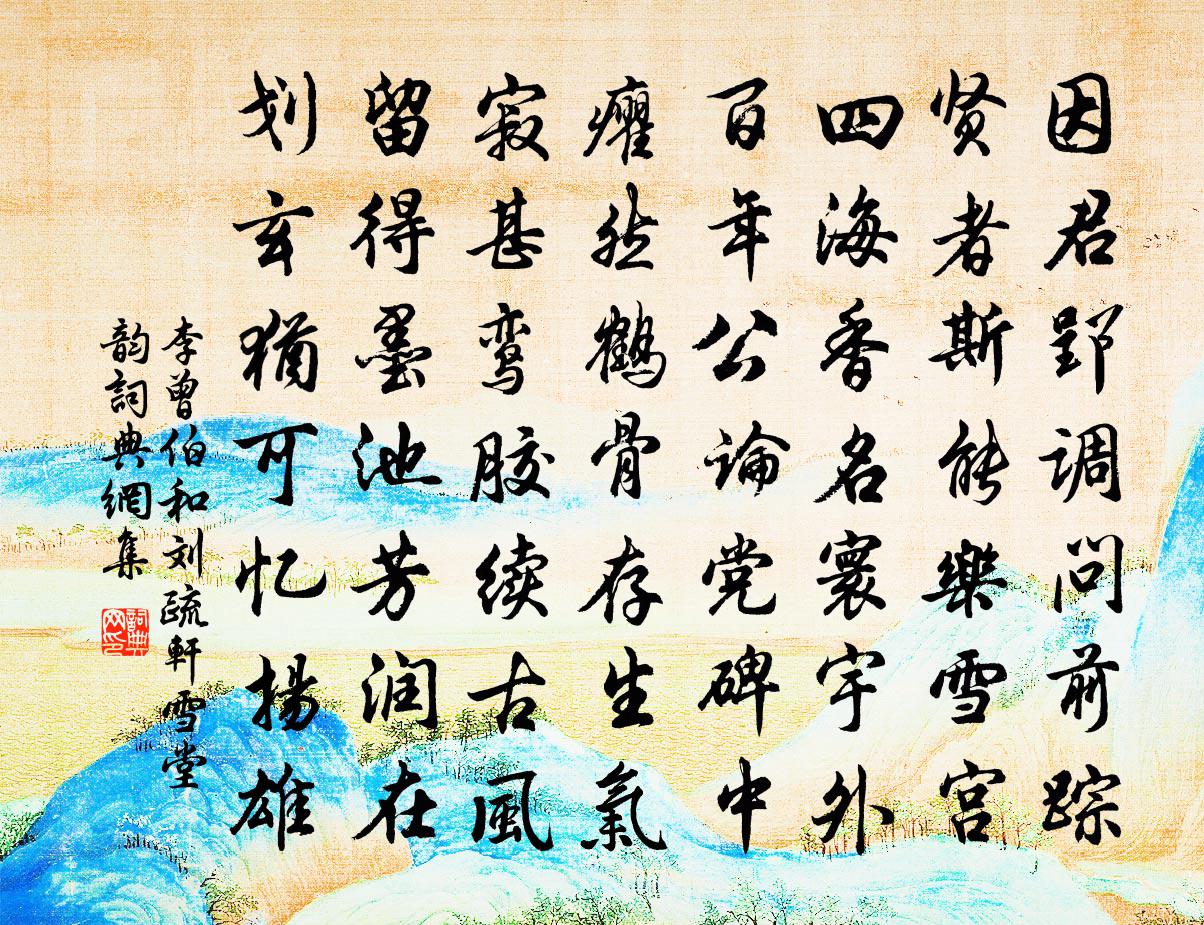 因君郢调问前踪
贤者斯能乐雪宫
四海香名寰宇外
百年公论党碑中
癯然鹤骨存生气
寂甚鸾胶续古风
留得墨池芳润在
划玄犹可忆扬雄
李曾伯和刘疏轩雪堂
韵词典网集
词典网印